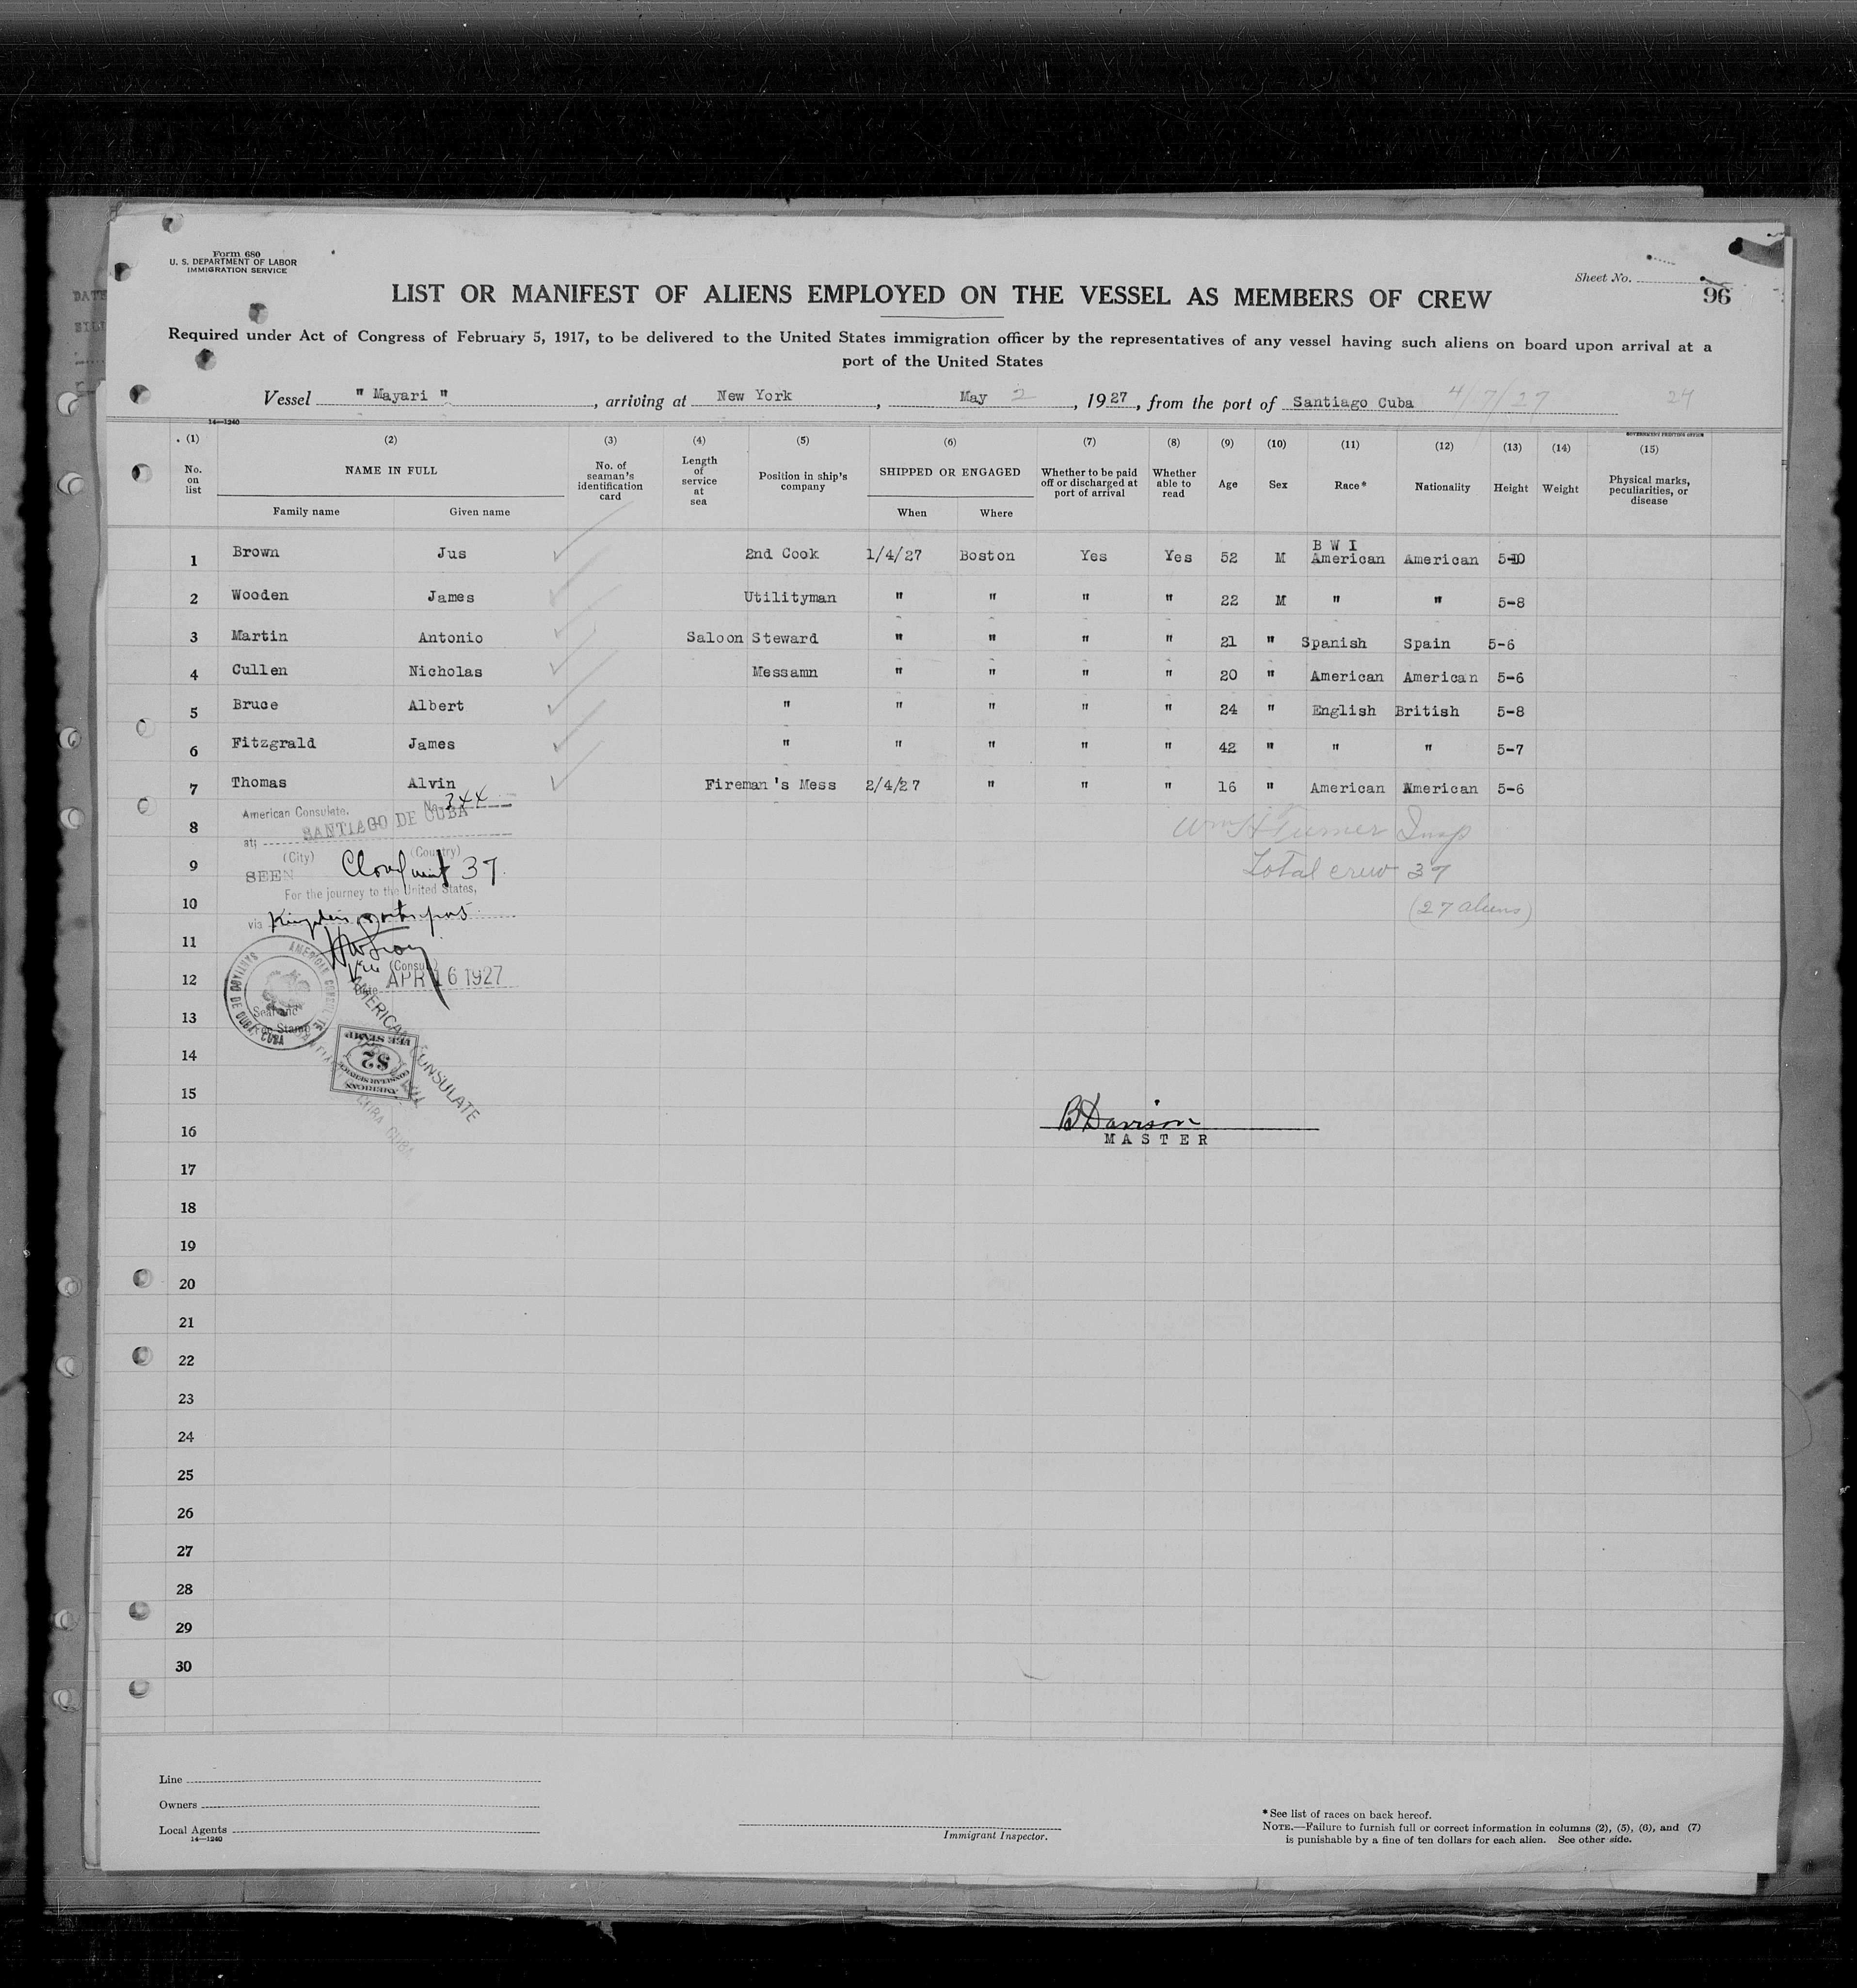 Form 680
U. S. DEPARTMENT OF LABOR
IMMIGRATION SERVICE
Sheet No.
96
LIST OR MANIFEST OF ALIENS EMPLOYED ON THE VESSEL AS MEMBERS OF CREW
Required under Act of Congress of February 5, 1917, to be delivered to the United States immigration officer by the representatives of any vessel having such aliens on board upon arrival at a
port of the United States
Vessel " Mayari ", arriving at New York, May 2, 1927, from the port of Santiago Cuba 4/7/27 24
14—1240
GOVERNMENT PRINTING OFFICE
(1) (2) (3) (4) (5) (6) (7) (8) (9) (10) (11) (12) (13) (14) (15)
No. on list NAME IN FULL No. of seaman's identification card Length of service at sea Position in ship's company SHIPPED OR ENGAGED Whether to be paid off or discharged at port of arrival Whether able to read Age Sex Race* Nationality Height Weight Physical marks, peculiarities, or disease
Family name Given name When Where
B W I
1 Brown Jus 2nd Cook 1/4/27 Boston Yes Yes 52 M American American 5-10
2 Wooden James Utilityman " " " " 22 M " " 5-8
3 Martin Antonio Saloon Steward " " " " 21 " Spanish Spain 5-6
4 Cullen Nicholas Messamn " " " " 20 " American American 5-6
5 Bruce Albert " " " " " 24 " English British 5-8
6 Fitzgrald James " " " " " 42 " " " 5-7
7 Thomas Alvin Fireman's Mess 2/4/27 " " " 16 " American American 5-6
American Consulate. No. 344
8 at; SANTIAGO DE CUBA
Wm H Turner Insp
(City) (Country)
9 SEEN 37.
Total crew 37
For the journey to the United States,
10 via
(27 aliens)
11
(Consul)
12 Date APR 16 1927
AMERICAN CONSULATE
SANTIAGO DE CUBA, CUBA
13
Fee Stamp
AMERICAN CONSULATE
14
FEE STAMP
$2
AMERICAN
CONSULAR SERVICE
15
B Davison
16 MASTER
17
18
19
20
21
22
23
24
25
26
27
28
29
30
Line
Owners
Local Agents
14—1240
Immigrant Inspector.
*See list of races on back hereof.
NOTE.—Failure to furnish full or correct information in columns (2), (5), (6), and (7)
is punishable by a fine of ten dollars for each alien. See other side.